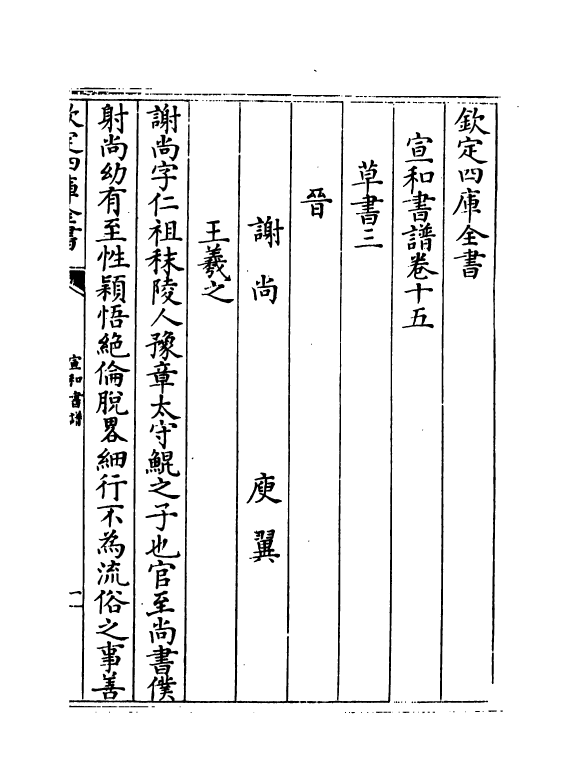 欽定四庫全書
宣和書譜卷十五
草書三
晉
謝尚　庾翼
王羲之
謝尚字仁祖秣陵人豫章太守鯤之子也官至尚書僕
射尚幼有至性穎悟絶倫脫畧細行不為流俗之事善
欽定四庫全書
宣和書譜
一